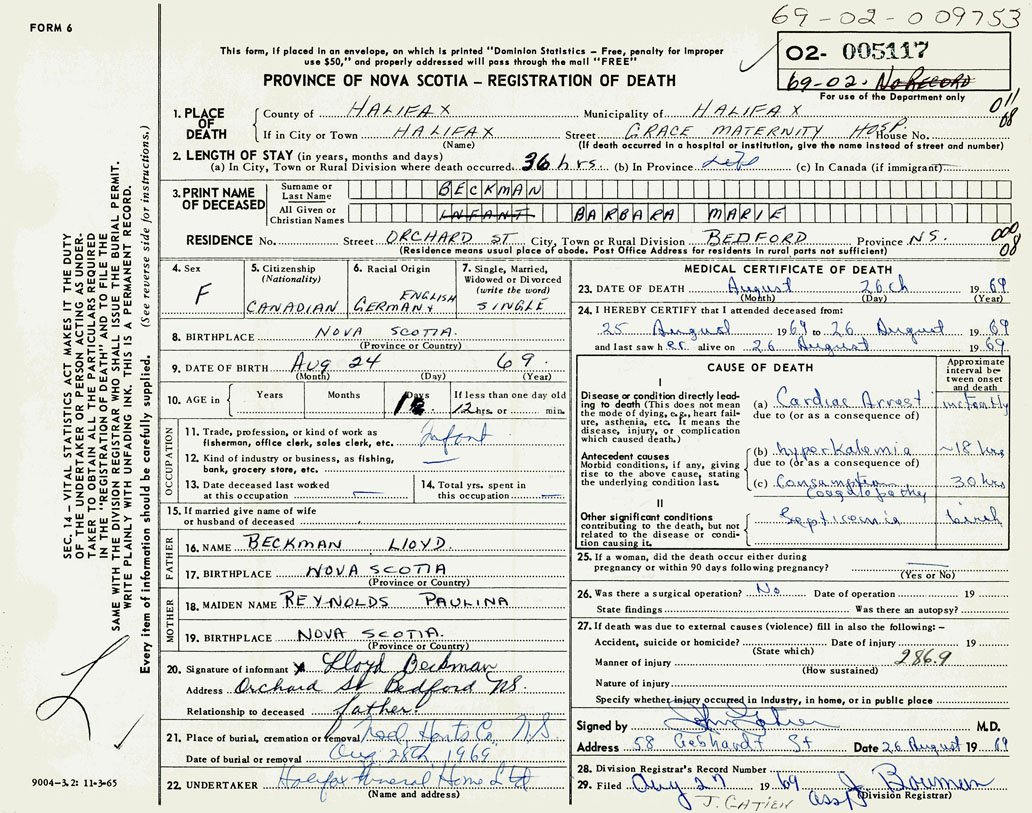 FORM 6
69-02-009753
This form, if placed in an envelope, on which is printed "Dominion Statistics – Free, penalty for improper
use $50," and properly addressed will pass through the mail "FREE"
PROVINCE OF NOVA SCOTIA – REGISTRATION OF DEATH
02- 005117
69-02. No RECORD
For use of the Department only
011
08
1. PLACE OF DEATH
County of HALIFAX Municipality of HALIFAX
If in City or Town HALIFAX Street GRACE MATERNITY HOSP. House No.
(Name) (If death occurred in a hospital or institution, give the name instead of street and number)
2. LENGTH OF STAY (in years, months and days)
(a) In City, Town or Rural Division where death occurred. 36 hrs. (b) In Province Life (c) In Canada (if immigrant)
3. PRINT NAME OF DECEASED
Surname or Last Name BECKMAN
All Given or Christian Names INFANT BARBARA MARIE
RESIDENCE No. Street ORCHARD ST City, Town or Rural Division BEDFORD Province NS.
(Residence means usual place of abode. Post Office Address for residents in rural parts not sufficient)
000
08
4. Sex F
5. Citizenship (Nationality) CANADIAN
6. Racial Origin ENGLISH GERMAN
7. Single, Married, Widowed or Divorced (write the word) SINGLE
8. BIRTHPLACE NOVA SCOTIA.
(Province or Country)
9. DATE OF BIRTH Aug 24 69.
(Month) (Day) (Year)
10. AGE in Years Months Days 1 If less than one day old 12 hrs. or min.
OCCUPATION
11. Trade, profession, or kind of work as fisherman, office clerk, sales clerk, etc. Infant
12. Kind of industry or business, as fishing, bank, grocery store, etc.
13. Date deceased last worked at this occupation
14. Total yrs. spent in this occupation
15. If married give name of wife or husband of deceased
FATHER
16. NAME BECKMAN LLOYD.
17. BIRTHPLACE NOVA SCOTIA
(Province or Country)
MOTHER
18. MAIDEN NAME REYNOLDS PAULINA
19. BIRTHPLACE NOVA SCOTIA.
(Province or Country)
20. Signature of informant x Lloyd Beckman
Address Orchard St Bedford NS.
Relationship to deceased father.
21. Place of burial, cremation or removal Co. NS
Date of burial or removal Aug 28th, 1969
22. UNDERTAKER Halifax Funeral Home Ltd
(Name and address)
MEDICAL CERTIFICATE OF DEATH
23. DATE OF DEATH August 26th 19 69
(Month) (Day) (Year)
24. I HEREBY CERTIFY that I attended deceased from:
25 August 1969 to 26 August 1969
and last saw her alive on 26 August 1969.
CAUSE OF DEATH
Approximate interval between onset and death
I
Disease or condition directly leading to death (This does not mean the mode of dying, e.g., heart failure, asthenia, etc. It means the disease, injury, or complication which caused death.)
(a) Cardiac Arrest instantly
due to (or as a consequence of)
Antecedent causes
Morbid conditions, if any, giving rise to the above cause, stating the underlying condition last.
(b) hyperkalemia ~18 hrs
due to (or as a consequence of)
(c) Consumption Coagulopathy 30 hrs
II
Other significant conditions contributing to the death, but not related to the disease or condition causing it.
Septicemia birth
25. If a woman, did the death occur either during
pregnancy or within 90 days following pregnancy?
(Yes or No)
26. Was there a surgical operation? No Date of operation 19
State findings Was there an autopsy?
27. If death was due to external causes (violence) fill in also the following: –
Accident, suicide or homicide? Date of injury 19
(State which)
Manner of injury 286.9
(How sustained)
Nature of injury
Specify whether injury occurred in industry, in home, or in public place
Signed by John Gatien M.D.
Address 58 Gebhardt St Date 26 August 19 69
28. Division Registrar's Record Number
29. Filed Aug 27 19 69 J Bowman
(Division Registrar)
J. GATIEN
SEC. 14 – VITAL STATISTICS ACT MAKES IT THE DUTY
OF THE UNDERTAKER OR PERSON ACTING AS UNDER-
TAKER TO OBTAIN ALL THE PARTICULARS REQUIRED
IN THE "REGISTRATION OF DEATH" AND TO FILE THE
SAME WITH THE DIVISION REGISTRAR WHO SHALL ISSUE THE BURIAL PERMIT.
WRITE PLAINLY WITH UNFADING INK. THIS IS A PERMANENT RECORD.
Every item of information should be carefully supplied. (See reverse side for instructions.)
9004-3.2: 11-3-65